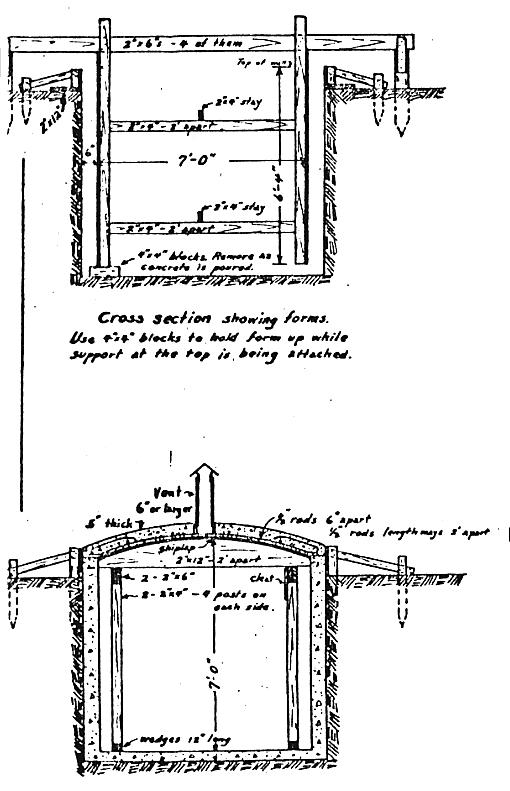 2"x6's - 4 of them
Top of
2"x4" stay
2"x12"
2"x4" - 2' apart
6"
7'-0"
2"x4" stay
2"x4" - 2' apart
4"x4" blocks. Remove as
concrete is poured.
Cross section showing forms.
Use 4"x4" blocks to hold form up while
support at the top is being attached.
Vent
6" or larger
5" thick
rods 6" apart
rods lengthways 2' apart
Shiplap
2"x12" - 2' apart
2 - 2"x6"
Cleat
2 - 2"x4" - 4 posts on
each side.
7'-0"
wedges 12" long